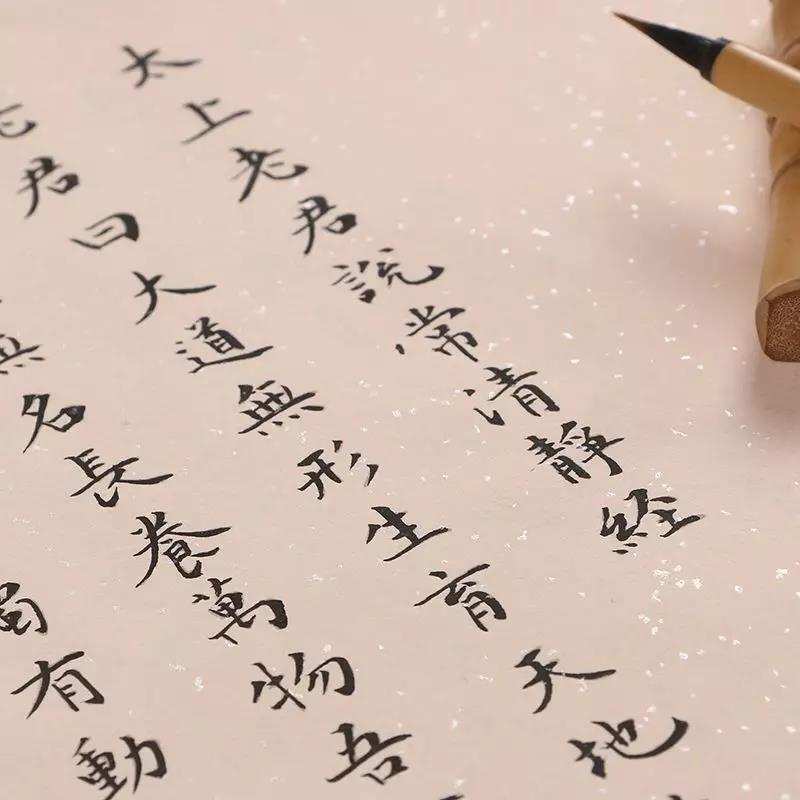 太上老君說常清靜經
老君曰大道無形生育天地
無名長養萬物吾
濁有動